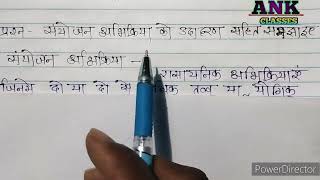 ANK
CLASSES
प्रश्न- संयोजन अभिक्रिया को उदाहरण सहित समझाइए
संयोजन अभिक्रिया -
रासायनिक अभिक्रियाएं
जिनमें दो या दो से तत्व या यौगिक
PowerDirector